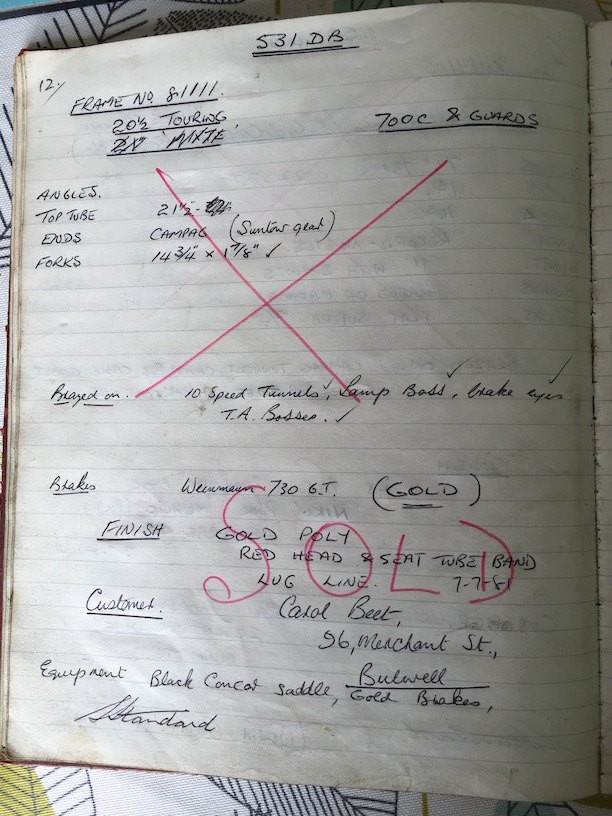 531 DB
12.
FRAME NO. 81111.
20½ TOURING, 700C & GUARDS
21" MIXTE
ANGLES.
TOP TUBE 21½"
ENDS CAMPAG (Suntour gear)
FORKS 14¾" x 1⅞" ✓
Brazed on. 10 Speed Tunnels ✓, Lamp Boss ✓, brake eyes ✓
T.A. Bosses. ✓
Brakes Weinmann 730 G.T. (GOLD)
SOLD
FINISH GOLD POLY
RED HEAD & SEAT TUBE BAND
LUG LINE. 7-7-81
Customer. Carol Beet,
96, Merchant St.,
Bulwell
Equipment Black Concor saddle, Gold Brakes,
Standard